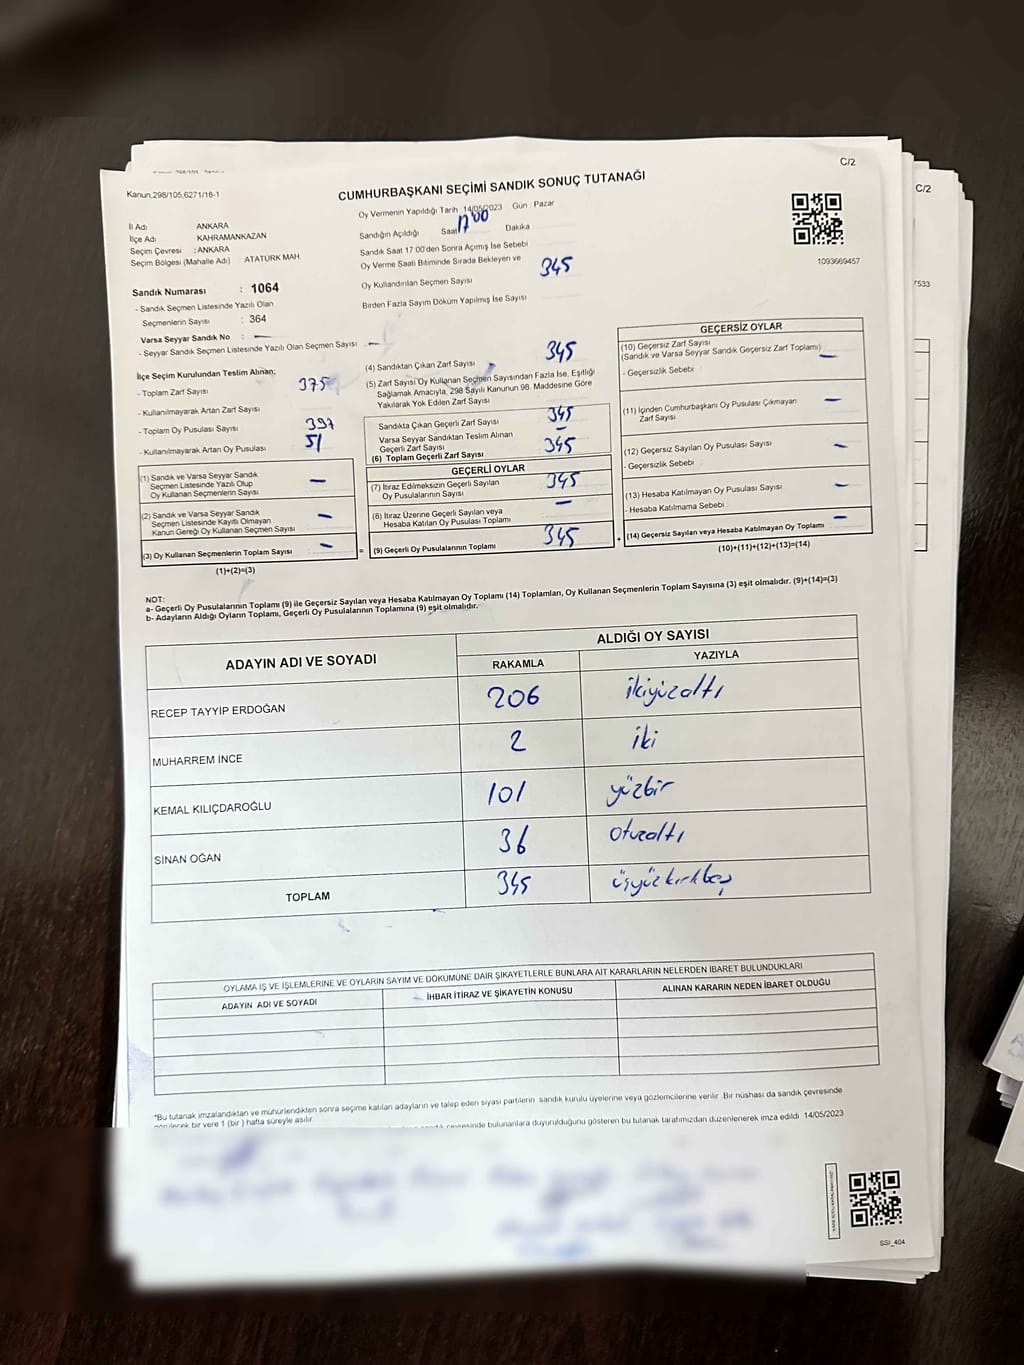 C/2
C/2
Kanun,298/105,6271/18-1
CUMHURBAŞKANI SEÇİMİ SANDIK SONUÇ TUTANAĞI
Oy Vermenin Yapıldığı Tarih 14/05/2023 Gün : Pazar
İl Adı ANKARA
İlçe Adı KAHRAMANKAZAN
Seçim Çevresi : ANKARA
Seçim Bölgesi (Mahalle Adı) ATATÜRK MAH
Sandığın Açıldığı Saat 17:00 Dakika
Sandık Saat 17:00'den Sonra Açılmış İse Sebebi
Oy Verme Saati Bitiminde Sırada Bekleyen ve
Oy Kullandırılan Seçmen Sayısı 345
Birden Fazla Sayım Döküm Yapılmış İse Sayısı
1093669457
7533
Sandık Numarası : 1064
- Sandık Seçmen Listesinde Yazılı Olan
Seçmenlerin Sayısı : 364
Varsa Seyyar Sandık No : —
- Seyyar Sandık Seçmen Listesinde Yazılı Olan Seçmen Sayısı —
İlçe Seçim Kurulundan Teslim Alınan;
- Toplam Zarf Sayısı 375
- Kullanılmayarak Artan Zarf Sayısı
- Toplam Oy Pusulası Sayısı 397
- Kullanılmayarak Artan Oy Pusulası 51
(1) Sandık ve Varsa Seyyar Sandık
Seçmen Listesinde Yazılı Olup
Oy Kullanan Seçmenlerin Sayısı —
(2) Sandık ve Varsa Seyyar Sandık
Seçmen Listesinde Kayıtlı Olmayan
Kanun Gereği Oy Kullanan Seçmen Sayısı —
(3) Oy Kullanan Seçmenlerin Toplam Sayısı —
(1)+(2)=(3)
(4) Sandıktan Çıkan Zarf Sayısı 345
(5) Zarf Sayısı Oy Kullanan Seçmen Sayısından Fazla İse, Eşitliği
Sağlamak Amacıyla, 298 Sayılı Kanunun 98. Maddesine Göre
Yakılarak Yok Edilen Zarf Sayısı
Sandıkta Çıkan Geçerli Zarf Sayısı 345
Varsa Seyyar Sandıktan Teslim Alınan
Geçerli Zarf Sayısı —
(6) Toplam Geçerli Zarf Sayısı 345
GEÇERLİ OYLAR
(7) İtiraz Edilmeksizin Geçerli Sayılan
Oy Pusulalarının Sayısı 345
(8) İtiraz Üzerine Geçerli Sayılan veya
Hesaba Katılan Oy Pusulası Toplamı —
= (9) Geçerli Oy Pusulalarının Toplamı 345
GEÇERSİZ OYLAR
(10) Geçersiz Zarf Sayısı
(Sandık ve Varsa Seyyar Sandık Geçersiz Zarf Toplamı) —
- Geçersizlik Sebebi
(11) İçinden Cumhurbaşkanı Oy Pusulası Çıkmayan
Zarf Sayısı —
(12) Geçersiz Sayılan Oy Pusulası Sayısı —
- Geçersizlik Sebebi
(13) Hesaba Katılmayan Oy Pusulası Sayısı —
- Hesaba Katılmama Sebebi
+ (14) Geçersiz Sayılan veya Hesaba Katılmayan Oy Toplamı —
(10)+(11)+(12)+(13)=(14)
NOT:
a- Geçerli Oy Pusulalarının Toplamı (9) ile Geçersiz Sayılan veya Hesaba Katılmayan Oy Toplamı (14) Toplamları, Oy Kullanan Seçmenlerin Toplam Sayısına (3) eşit olmalıdır. (9)+(14)=(3)
b- Adayların Aldığı Oyların Toplamı, Geçerli Oy Pusulalarının Toplamına (9) eşit olmalıdır.
ADAYIN ADI VE SOYADI ALDIĞI OY SAYISI
RAKAMLA YAZIYLA
RECEP TAYYİP ERDOĞAN 206 ikiyüzaltı
MUHARREM İNCE 2 iki
KEMAL KILIÇDAROĞLU 101 yüzbir
SİNAN OĞAN 36 otuzaltı
TOPLAM 345 üçyüzkırkbeş
OYLAMA İŞ VE İŞLEMLERİNE VE OYLARIN SAYIM VE DÖKÜMÜNE DAİR ŞİKAYETLERLE BUNLARA AİT KARARLARIN NELERDEN İBARET BULUNDUKLARI
ADAYIN ADI VE SOYADI İHBAR İTİRAZ VE ŞİKAYETİN KONUSU ALINAN KARARIN NEDEN İBARET OLDUĞU
*Bu tutanak imzalandıktan ve mühürlendikten sonra seçime katılan adayların ve talep eden siyasi partilerin sandık kurulu üyelerine veya gözlemcilerine verilir. Bir nüshası da sandık çevresinde
görülecek bir yere 1 (bir) hafta süreyle asılır. bulunanlara duyurulduğunu gösteren bu tutanak tarafımızdan düzenlenerek imza edildi. 14/05/2023
SSI_404